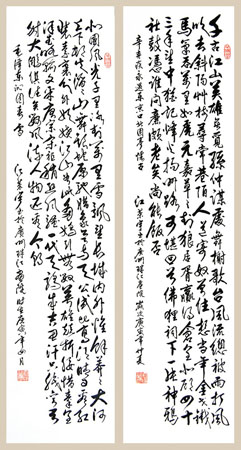 千古江山英雄无觅孙仲谋处舞榭歌台风流总被雨打风
吹去斜阳草树寻常巷陌人道寄奴曾住想当年金戈铁
马气吞万里如虎元嘉草草封狼居胥赢得仓皇北顾四十
三年望中犹记烽火扬州路可堪回首佛狸祠下一片神鸦
社鼓凭谁问廉颇老矣尚能饭否
辛弃疾永遇乐京口北固亭怀古
北国风光千里冰封万里雪飘望长城内外惟馀莽莽大河
上下顿失滔滔山舞银蛇原驰蜡象欲与天公试比高须晴日看红
装素裹分外妖娆江山如此多娇引无数英雄竞折腰惜秦皇
汉武略输文采唐宗宋祖稍逊风骚一代天骄成吉思汗只识弯弓
射大雕俱往矣数风流人物还看今朝
毛泽东沁园春雪